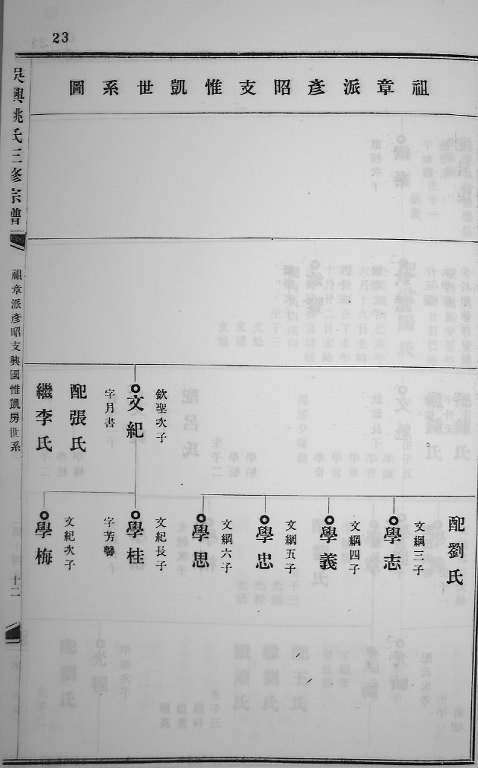 23
祖章派彥昭支惟凱世系圖
吳興姚氏三修宗譜
祖章派彥昭支興國惟凱房世系
十二
欽聖次子
文紀
字月書
配張氏
繼李氏
配劉氏
文綱三子
學志
文綱四子
學義
文綱五子
學忠
文綱六子
學思
文紀長子
學桂
字芳馨
文紀次子
學梅